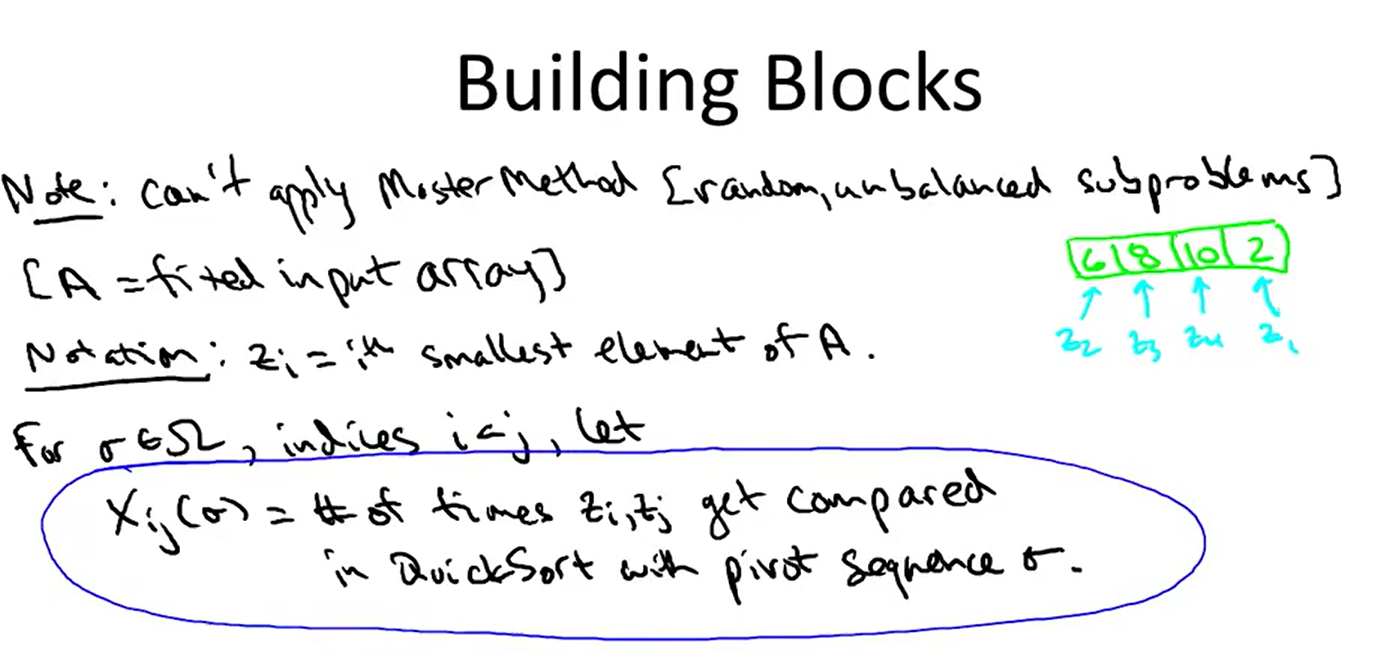 Building Blocks
Note: can't apply Master Method [random, unbalanced subproblems]
[A = fixed input array]
6 8 10 2
Notation: zi = ith smallest element of A.
z2 z3 z4 z1
For σ ∈ Ω, indices i < j, let
Xij(σ) = # of times zi, zj get compared
in QuickSort with pivot sequence σ.